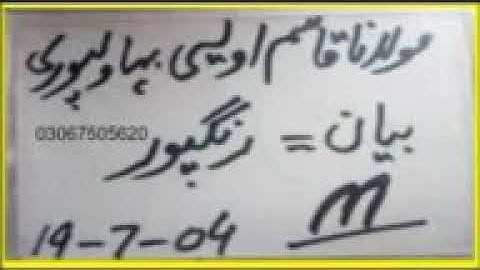 مولانا قاسم اویسی بہاولپوری
بیان = رنگپور
03067505620
19-7-04
M